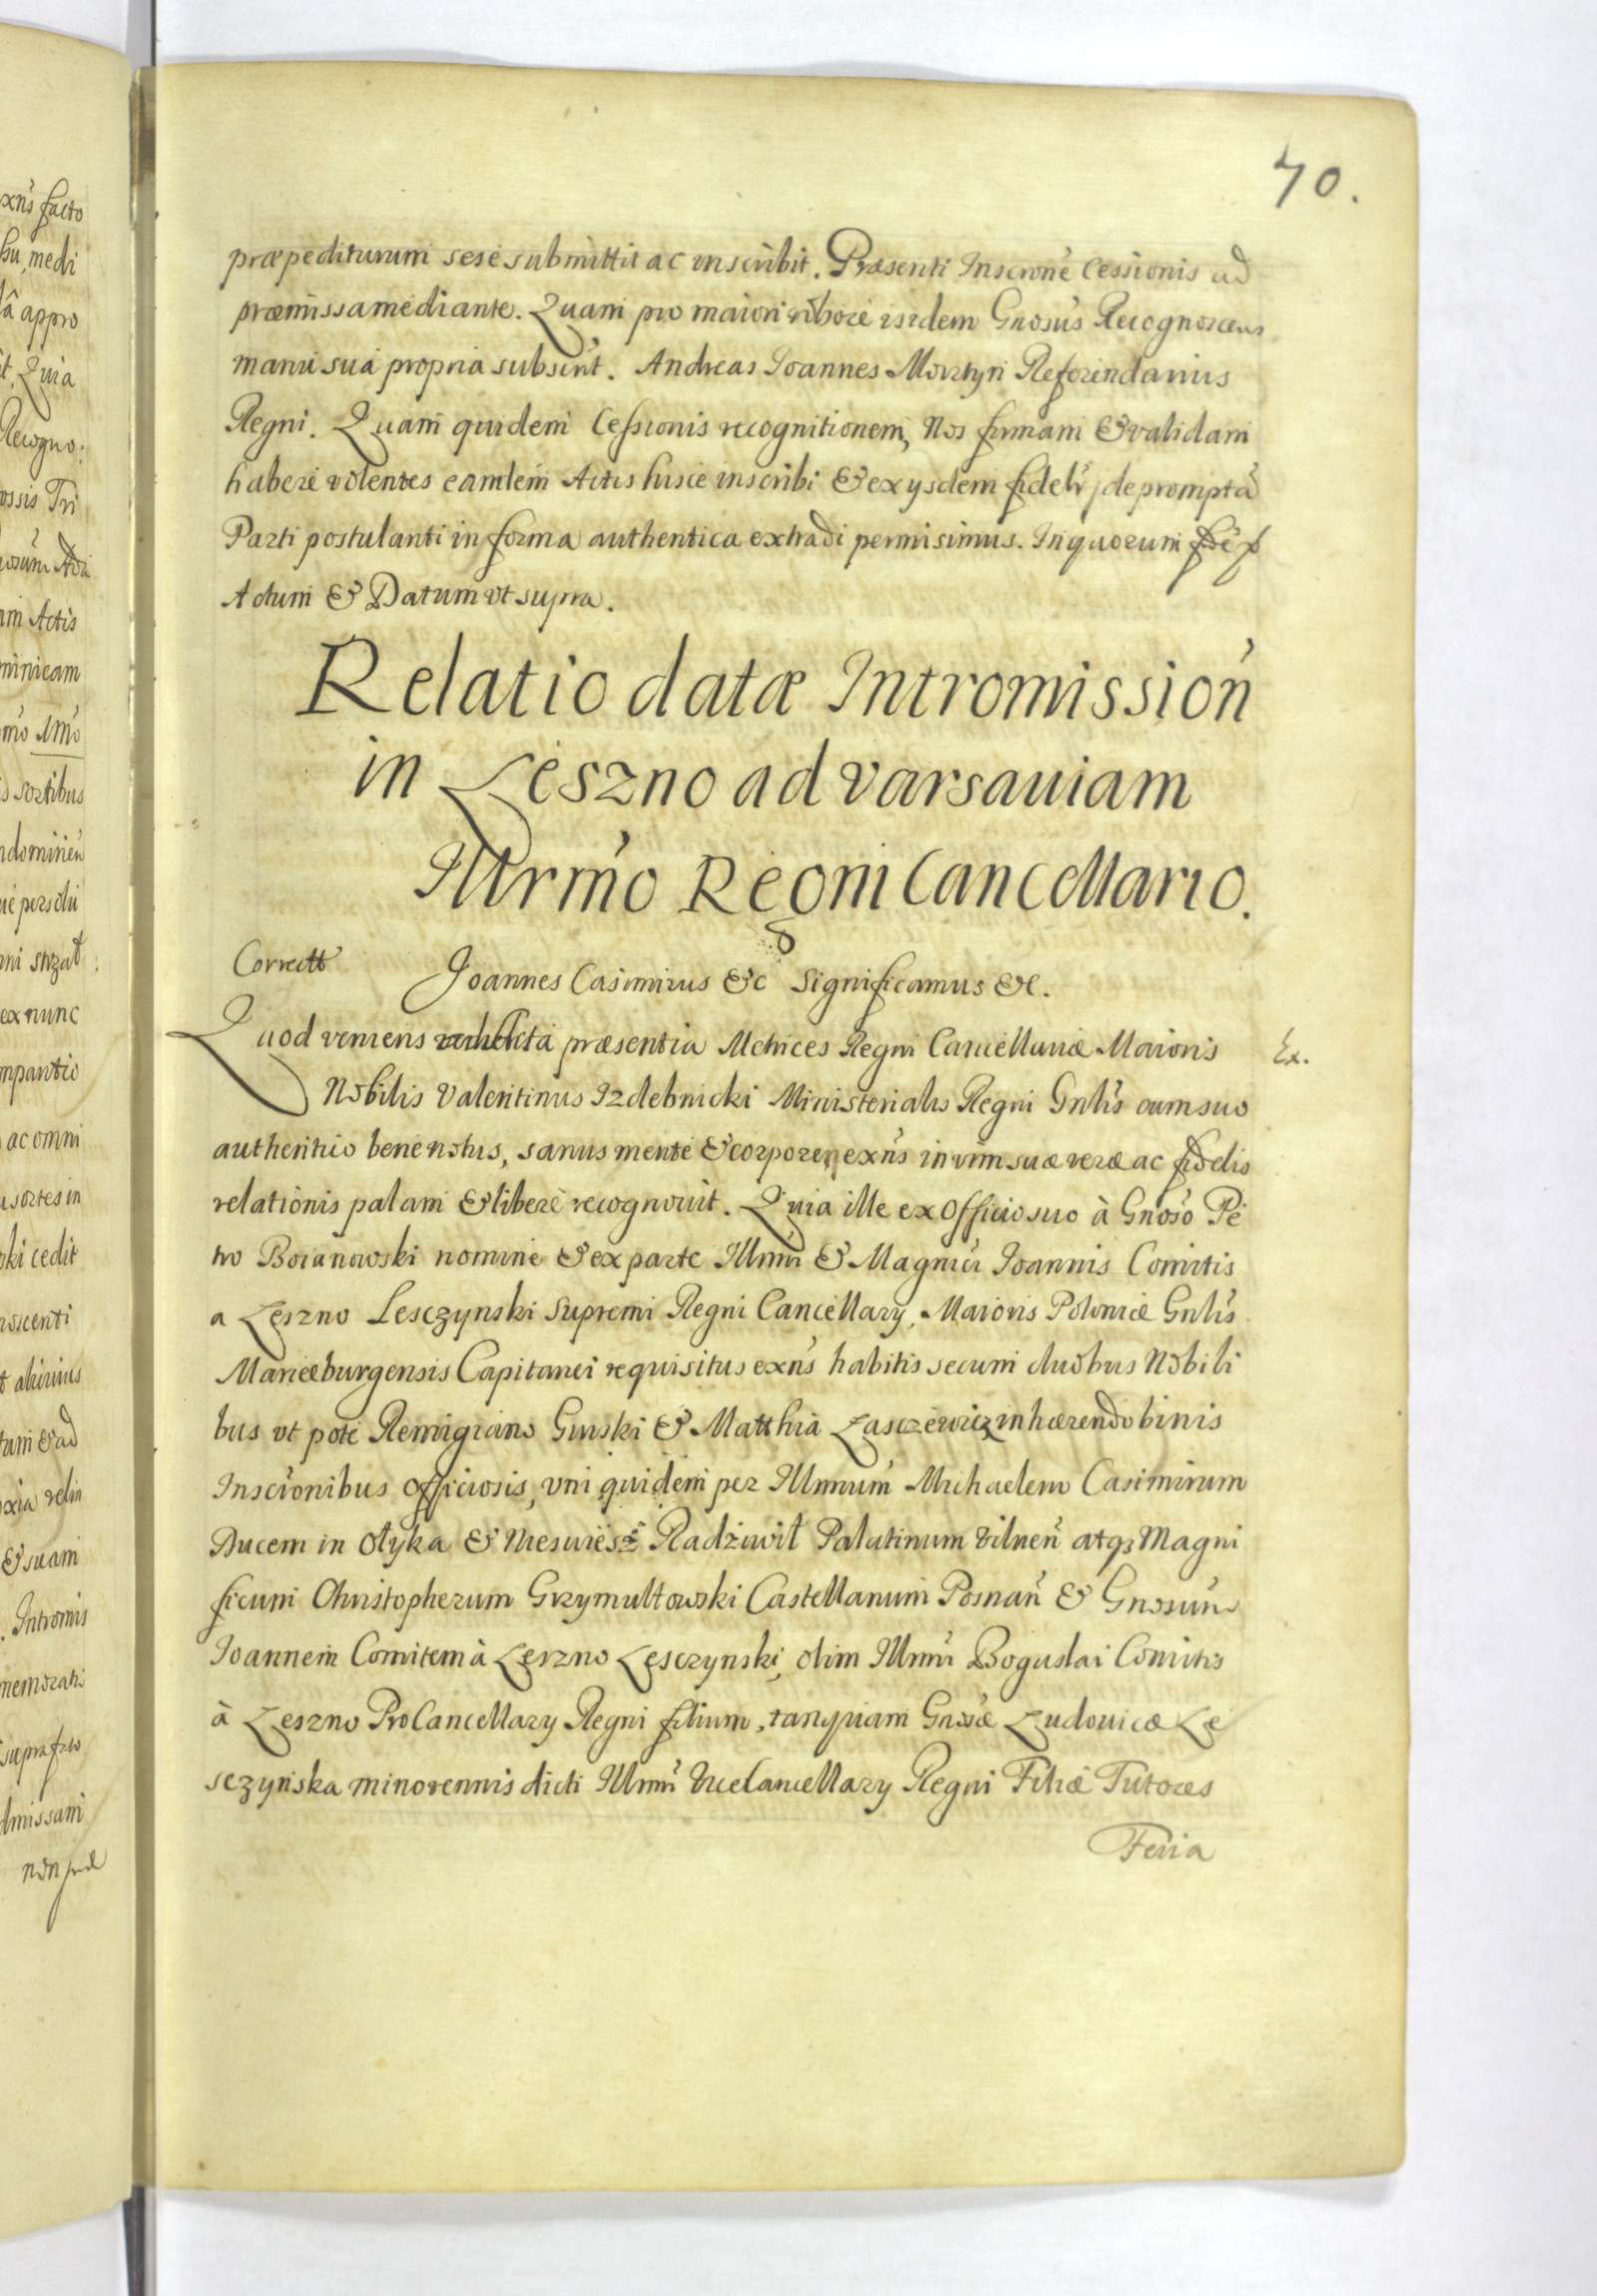 70.
præpediturum sese submittit ac inscribit. Præsenti Inscrōne Cessionis ad
præmissa mediante. Quam pro maiori robore isidem Gnosus Recognoscens
manu sua propria subscrit. Andreas Ioannes Morztyn Referendarius
Regni. Quam quidem Cessionis recognitionem, Nos firmam & validam
habere volentes eamdem Actis hisce inscribi & ex ysdem fideliṙ depromptā
Parti postulanti in forma authentica extradi permisimus. In quorum
Actum & Datum vt supra.
Relatio datæ Intromissioń
in Leszno ad varsauiam
Illrm̃o Regni Cancellario.
Correctt
Joannes Casimirus &c Significamus &c.
Quod veniens præsentia Metrices Regni Cancellariæ Maioris
Ex.
Nobilis Valentinus Izdebnicki Ministerialis Regni Gnlis cum suo
authentico bene notus, sanus mente & corpore exns in vim suæ veræ ac fidelis
relationis palam & liberè recognouit. Quia ille ex Officio suo à Gnoso Pe
tro Boianowski nomine & ex parte Illmi & Magnici Ioannis Comitis
a Leszno Lesczynski Supremi Regni Cancellary, Maioris Poloniæ Gnlis
Mariæburgensis Capitanei requisitus exns habitis secum duobus Nobili
bus vt pote Remigiano Gurski & Matthia Lasczewicz inhærendo binis
Inscronibus officiosis, vni quidem per Illmum Michaelem Casimirum
Ducem in Olyka & Nieswiesz Radziwił Palatinum Vilnen atqꝫ Magni
ficum Christopherum Grzymułtowski Castellanum Posnan & Gnosum
Ioannem Comitem à Leszno Lesczynski, olim Illmi Boguslai Comitis
à Leszno ProCancellary Regni filium, tanquam Gnosæ Ludouicæ Le
sczyńska minorennis dicti Illmi Vicecancellary Regni Filiæ Tutores
Feria